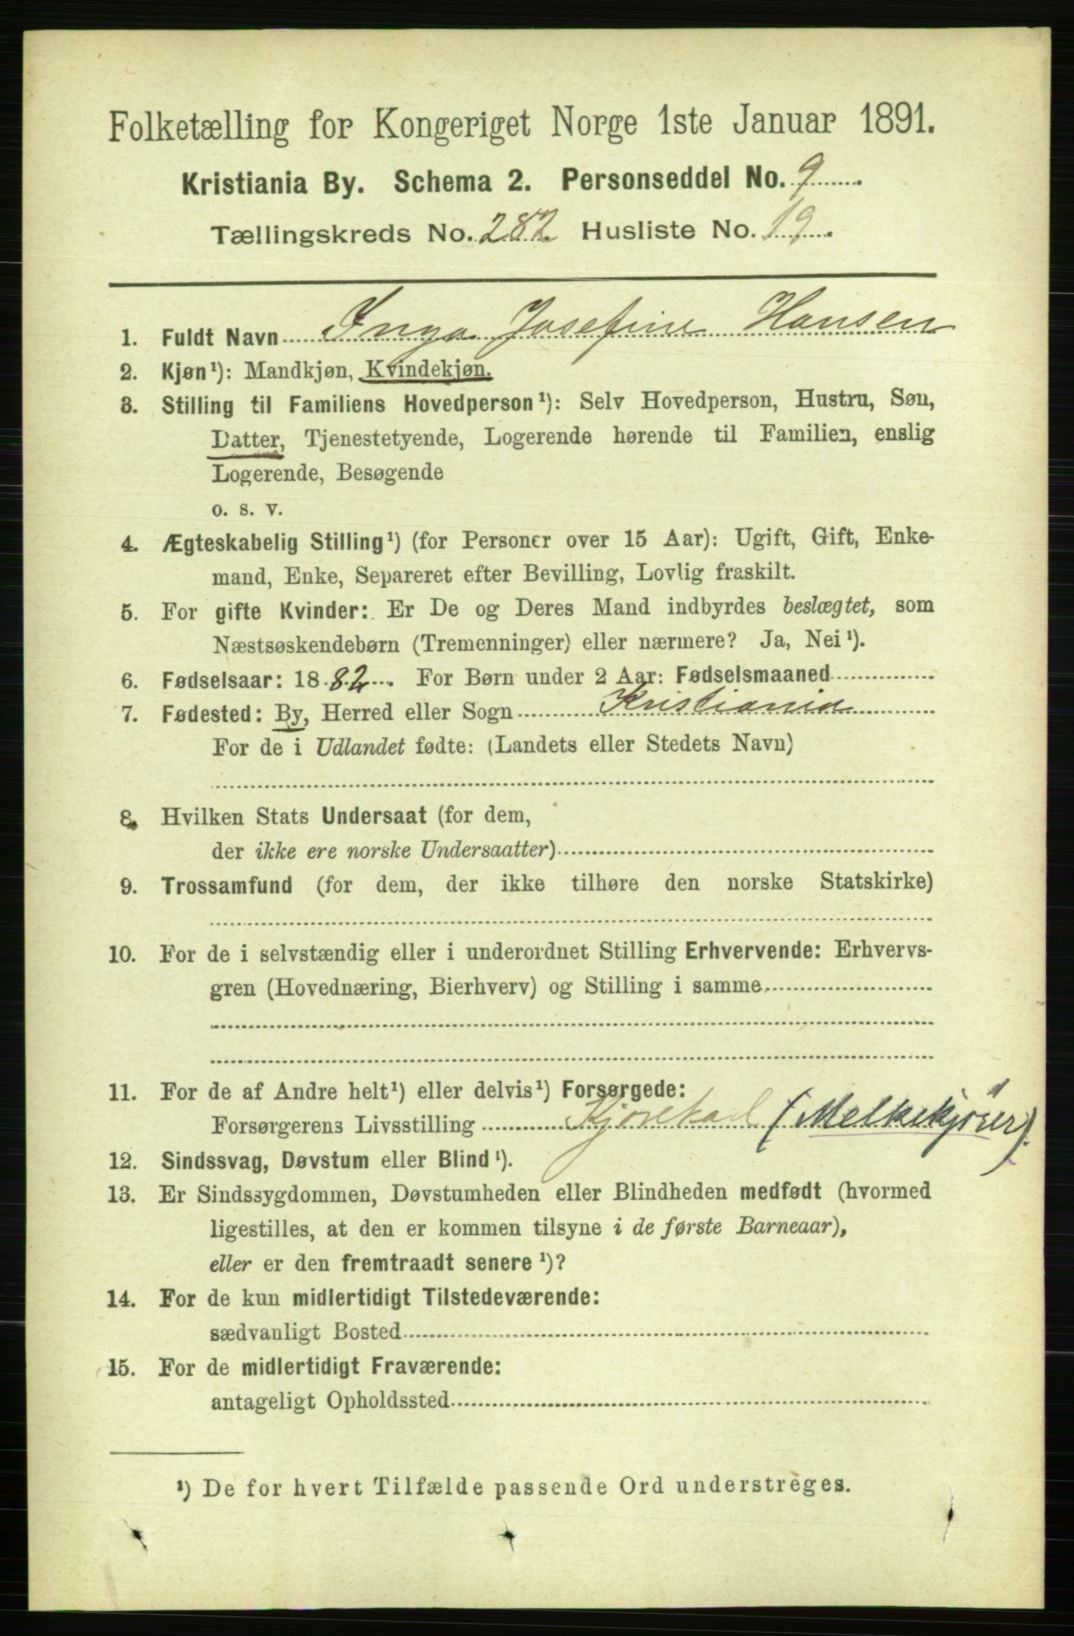 Folketælling for Kongeriget Norge 1ste Januar 1891.
Kristiania By. Schema 2. Personseddel No. 9
Tællingskreds No. 282 Husliste No. 19
1. Fuldt Navn Inga Josefine Hansen
2. Kjøn¹): Mandkjøn, Kvindekjøn.
3. Stilling til Familiens Hovedperson¹): Selv Hovedperson, Hustru, Søn,
Datter, Tjenestetyende, Logerende hørende til Familien, enslig
Logerende, Besøgende
o. s. v.
4. Ægteskabelig Stilling¹) (for Personer over 15 Aar): Ugift, Gift, Enke-
mand, Enke, Separeret efter Bevilling, Lovlig fraskilt.
5. For gifte Kvinder: Er De og Deres Mand indbyrdes beslægtet, som
Næstsøskendebørn (Tremenninger) eller nærmere? Ja, Nei¹).
6. Fødselsaar: 1882. For Børn under 2 Aar: Fødselsmaaned
7. Fødested: By, Herred eller Sogn Kristiania
For de i Udlandet fødte: (Landets eller Stedets Navn)
8. Hvilken Stats Undersaat (for dem,
der ikke ere norske Undersaatter)
9. Trossamfund (for dem, der ikke tilhøre den norske Statskirke)
10. For de i selvstændig eller i underordnet Stilling Erhvervende: Erhvervs-
gren (Hovednæring, Bierhverv) og Stilling i samme
11. For de af Andre helt¹) eller delvis¹) Forsørgede:
Forsørgerens Livsstilling Kjørekarl (Melkekjører).
12. Sindssvag, Døvstum eller Blind¹).
13. Er Sindssygdommen, Døvstumheden eller Blindheden medfødt (hvormed
ligestilles, at den er kommen tilsyne i de første Barneaar),
eller er den fremtraadt senere¹)?
14. For de kun midlertidigt Tilstedeværende:
sædvanligt Bosted
15. For de midlertidigt Fraværende:
antageligt Opholdssted
¹) De for hvert Tilfælde passende Ord understreges.